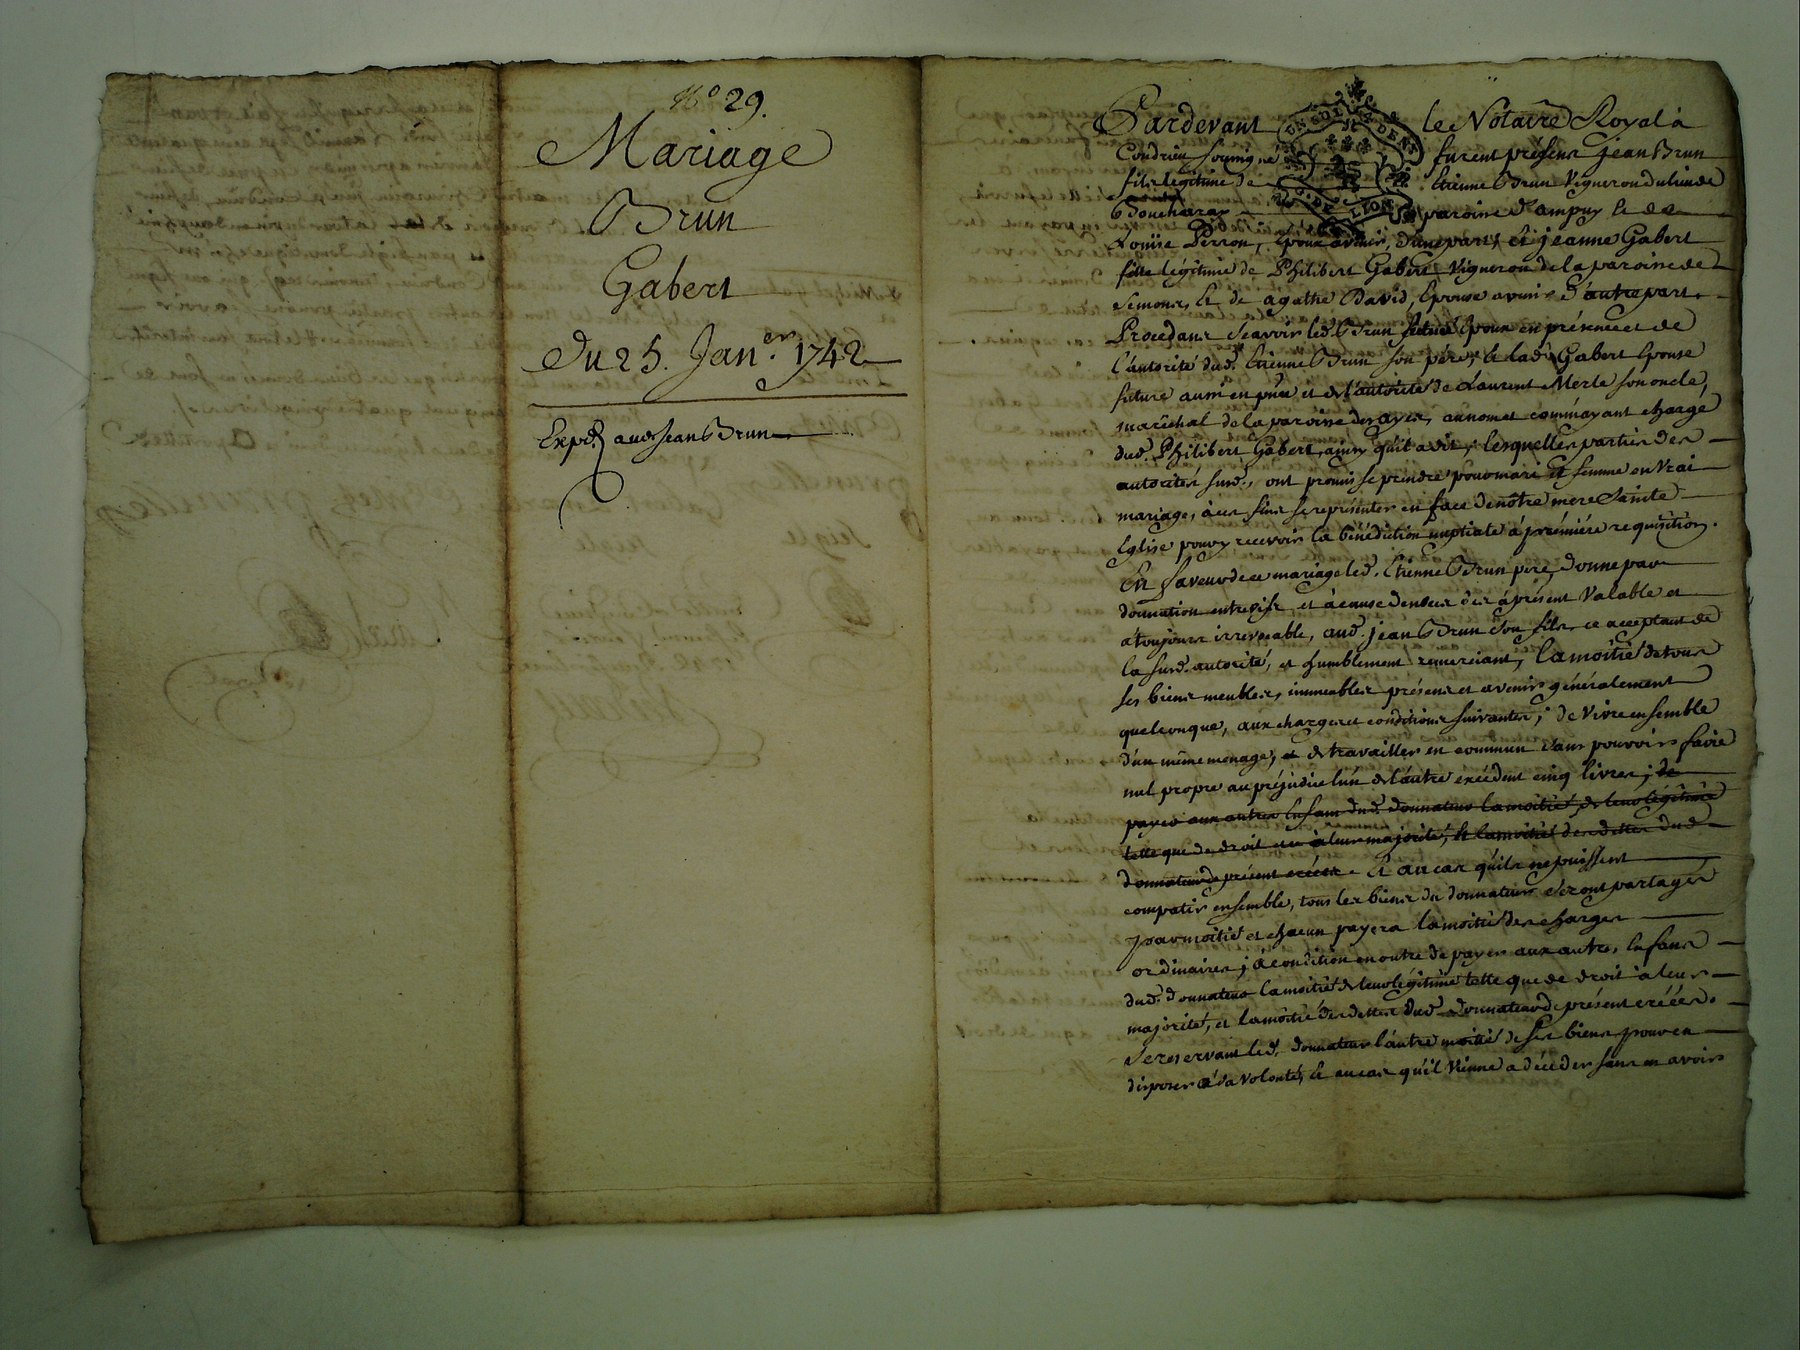 N.° 29.
Mariage
Brun
Gabert
Du 25. Jan.er 1742
Exped. aud. Jean Brun
Pardevant le Notaire Royal à
Condrieu soussigné furent présens Jean Brun
fils légitime de Etienne Brun Vigneron du lieu de
Boucharay paroisse d'ampuy et de
Louise Perron, Epoux avenir, d'une part, Et jeanne Gabert
fille légitime de Philibert Gabert Vigneron de la paroisse de
Semons, et de agathe David, Epouse avenir d'autre part.
Procedans scavoir led. Brun futur Epoux en présence et de
l'autorité dud. Etienne Brun son père, et lad. Gabert Epouse
future aussi en pnce et de l'autorité de Laurent Merle son oncle,
maréchal de la paroisse des ayes, au nom et comme ayant charge
dud. Philibert Gabert, ainsy qu'il a dit, lesquelles parties des
autorités susd., ont promis se prendre pour mari et femme en vrai
mariage, à ces fins se représenter en face de nôtre mere Sainte
Eglise pour y recevoir la bénédiction nuptiale à première requisition.
En faveur de ce mariage led. Etienne Brun pere, donne par
donnation entrevifs et à cause de nôces dès à présent Valable et
a toujours irrevocable, aud. jean Brun son fils, ce acceptant de
la susd. autorité, et humblement remerciant, la moitié de tous
ses biens meubles, immeubles présens et avenir généralement
quelconque, aux charges et conditions suivantes; de vivre ensemble
d'un même menage, et de travailler en commun sans pouvoir faire
nul propre au préjudice l'un de l'autre excédent cinq livres; de
payer aux autres Enfans dud. donnateur la moitié de leur légitime
telle que de droit à leur majorité, et la moitié des dettes dud.
donnateur de présent créées. Et au cas qu'ils ne puissent
compatir ensemble, tous les biens du donnateur seront partagés
par moitié et chacun payera la moitié des charges
ordinaires; à condition en outre de payer aux autres Enfans
dud. donnateur la moitié de leur légitime telle que de droit à leur
majorité, et la moitié des dettes dud. donnateur de présent créées.
Se reservant led. donnateur l'autre moitié de ses biens pour en
disposer à sa volonté, Et au cas qu'il vienne a décéder sans en avoir